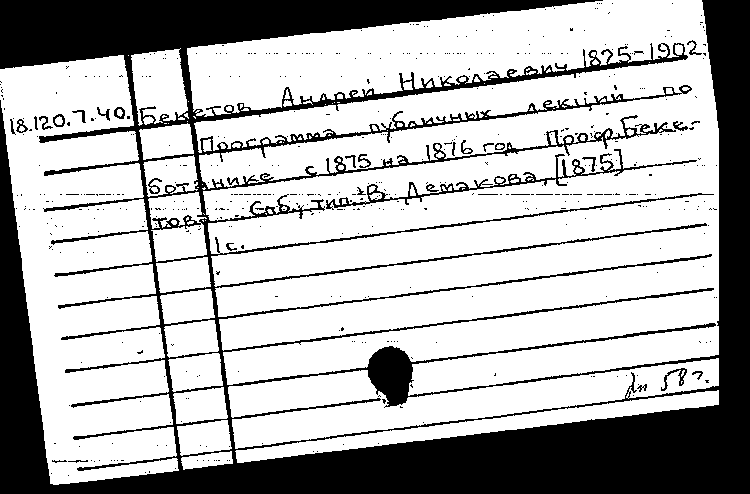 18.120.7.40. Бекетов, Андрей Николаевич, 1825-1902.
Программа публичных лекций по
ботанике с 1875 на 1876 год Проф. Беке-
това. Спб., тип. В. Демакова, [1875].
1 с.
58 г.